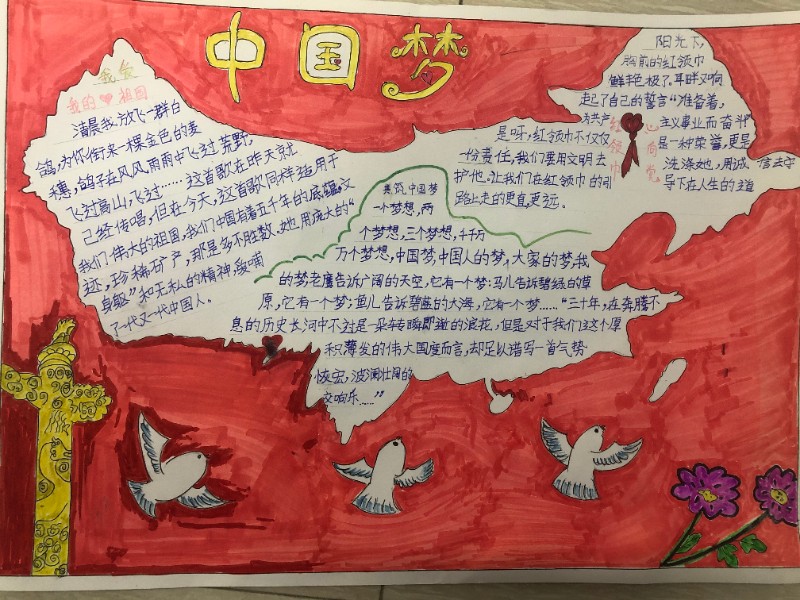 中国梦
我爱
我的祖国
清晨我放飞一群白
鸽,为你衔来一棵金色的麦
穗,鸽子在风风雨雨中飞过荒野,
飞过高山,飞过……这首歌在昨天就
已经传唱,但在今天,这首歌同样适用于
我们伟大的祖国,我们中国有着五千年的底蕴,文
迹,珍稀矿产,那是多不胜数.她用庞大的“
身躯”和无私的精神,爱哺
了一代又一代中国人。
美丽中国梦
一个梦想,两
个梦想,三个梦想,千千万
万个梦想,中国梦,中国人的梦,大家的梦,我
的梦老鹰告诉广阔的天空,它有一个梦;马儿告诉碧绿的草
原,它有一个梦;鱼儿告诉碧蓝的大海,它有个梦……“三十年,在奔腾不
息的历史长河中不过是一朵转瞬即逝的浪花,但是对于我们这个厚
积薄发的伟大国度而言,却足以谱写一首气势
恢宏,波澜壮阔的
交响乐……”
阳光下,
胸前的红领巾
鲜丰色极了.耳畔又响
起了自己的誓言“准备着,
为共产主义事业而奋斗
是呀,红领巾不仅仅是一种荣誉,更是
一份责任,我们要用文明去洗涤她,用诚信去守
护他.让我们在红领巾的引导下在人生的道
路上走的更直,更远.
红领巾
心向党